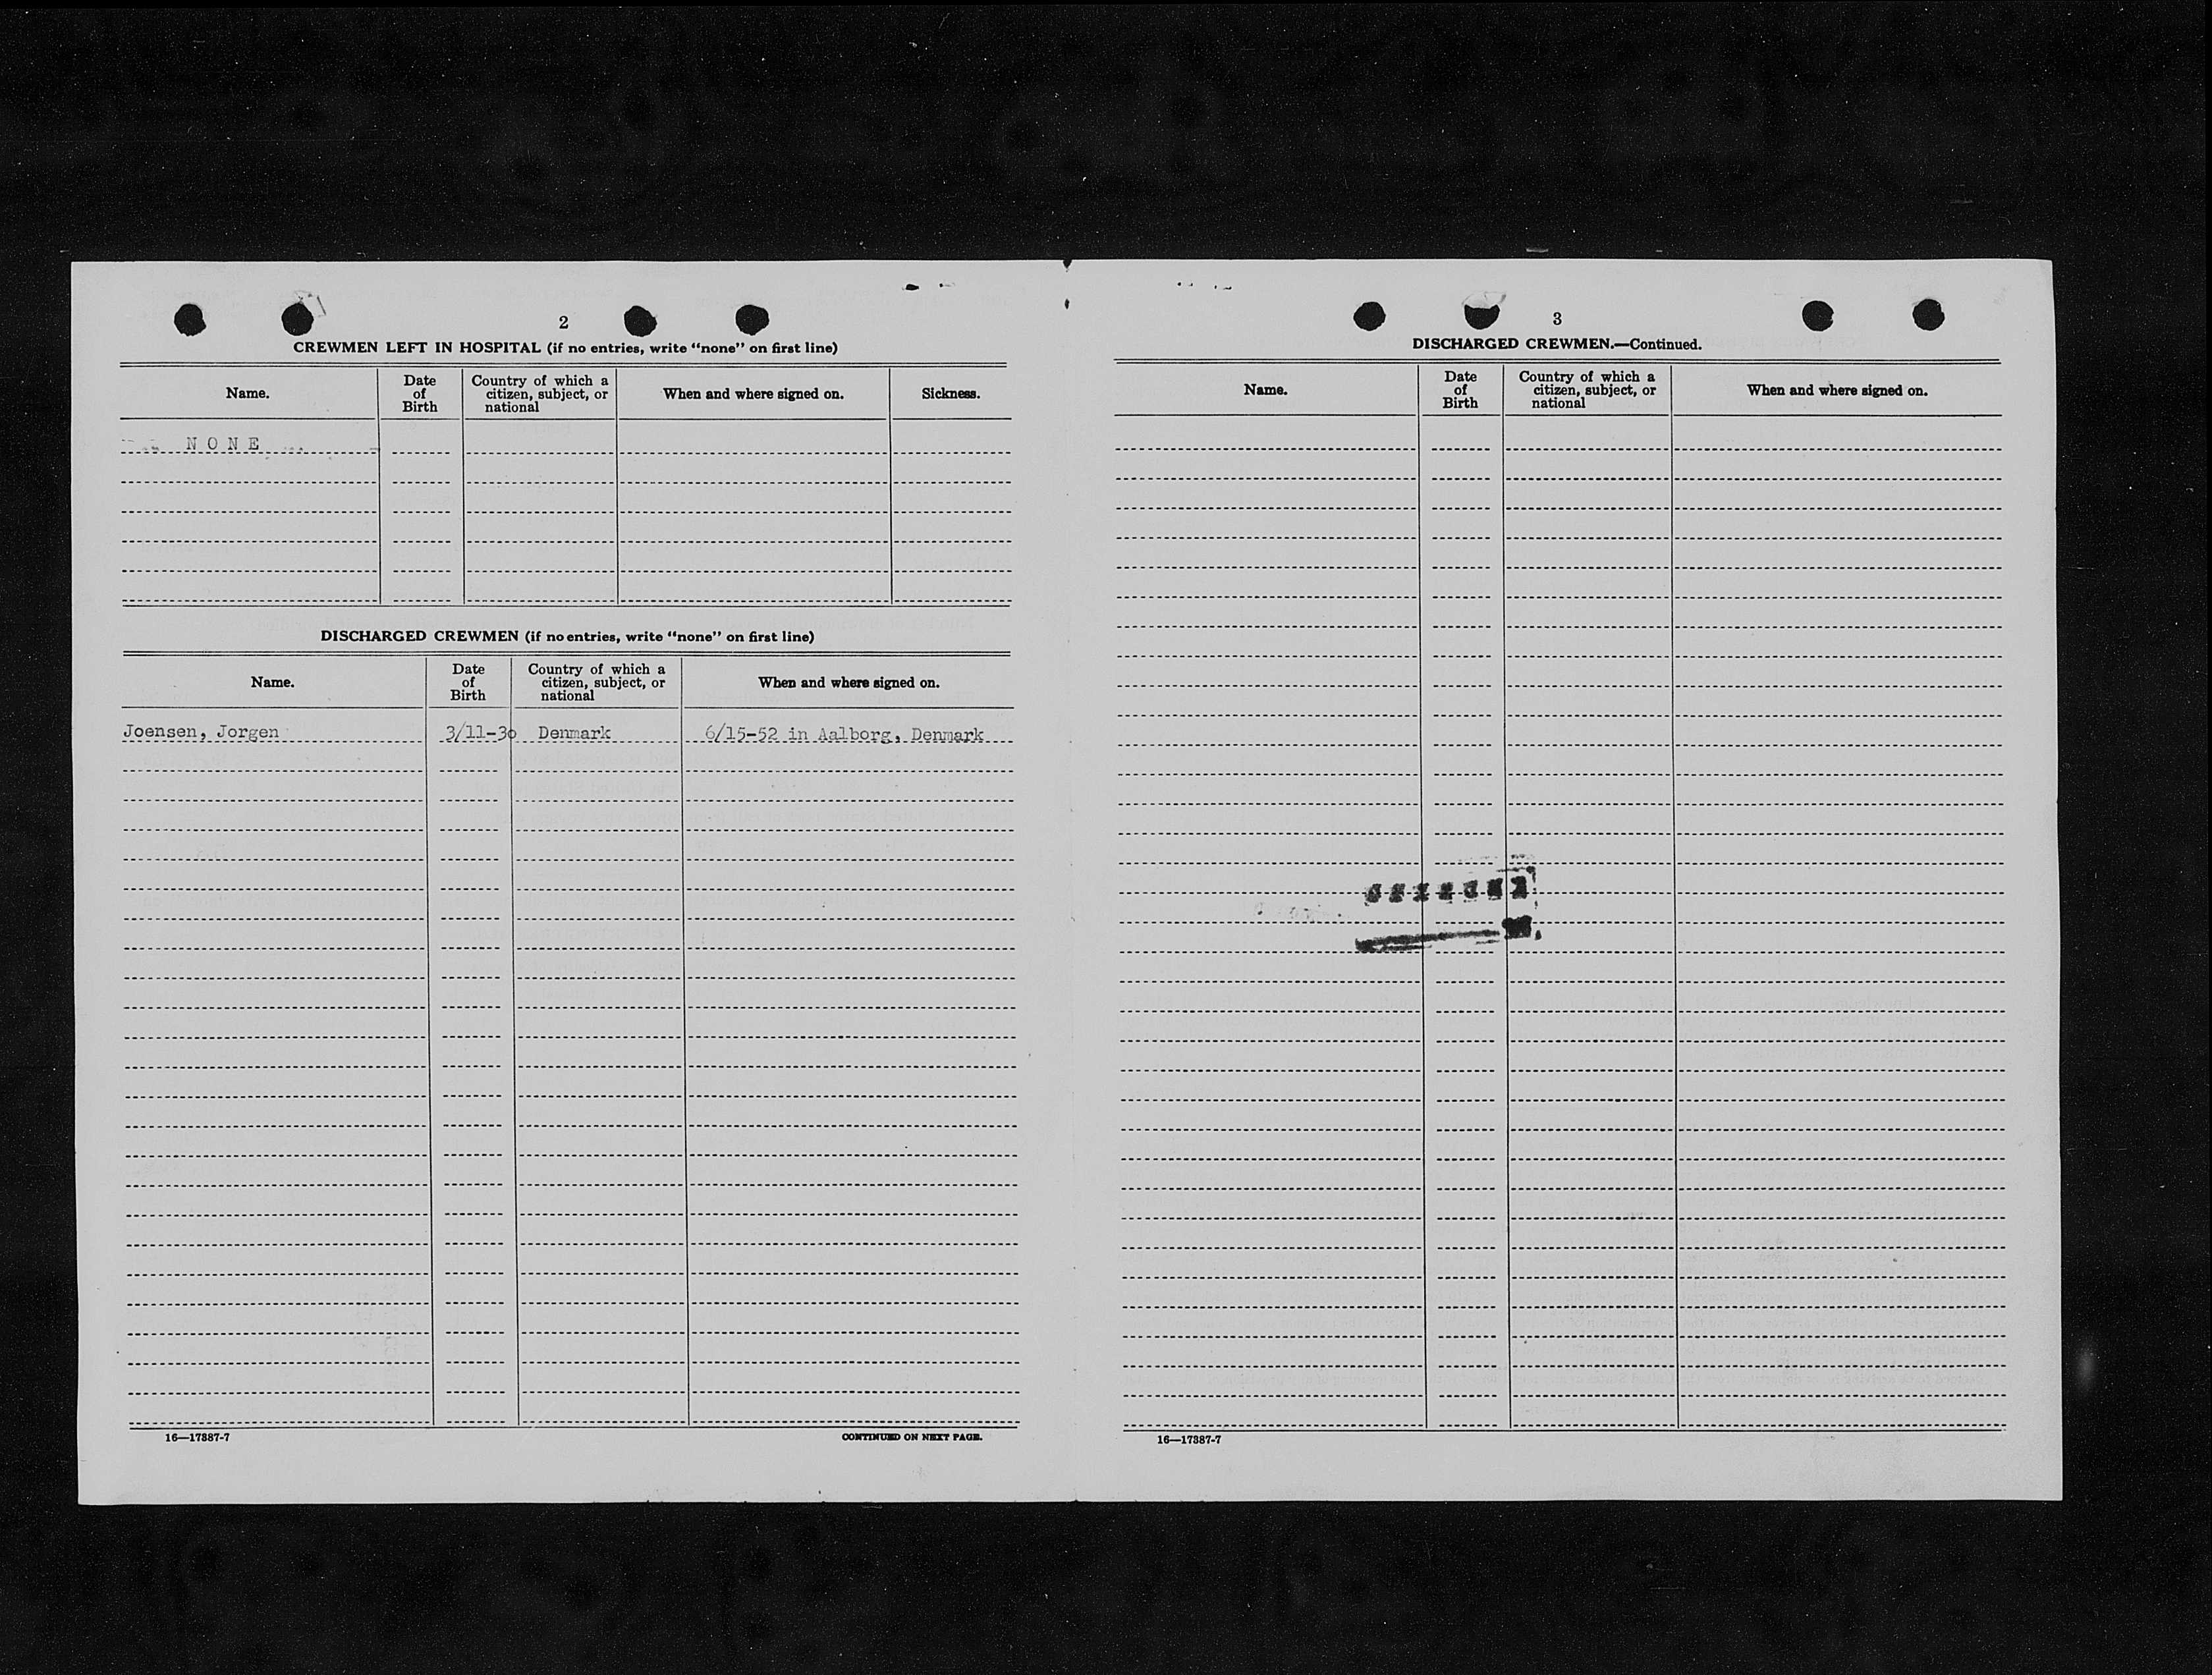 2
CREWMEN LEFT IN HOSPITAL (if no entries, write “none” on first line)
Name.
Date of Birth
Country of which a citizen, subject, or national
When and where signed on.
Sickness.
NONE
DISCHARGED CREWMEN (if no entries, write “none” on first line)
Name.
Date of Birth
Country of which a citizen, subject, or national
When and where signed on.
Joensen, Jorgen 3/11-30 Denmark 6/15-52 in Aalborg, Denmark
16—17387-7
CONTINUED ON NEXT PAGE.
3
DISCHARGED CREWMEN.—Continued.
Name.
Date of Birth
Country of which a citizen, subject, or national
When and where signed on.
16—17387-7